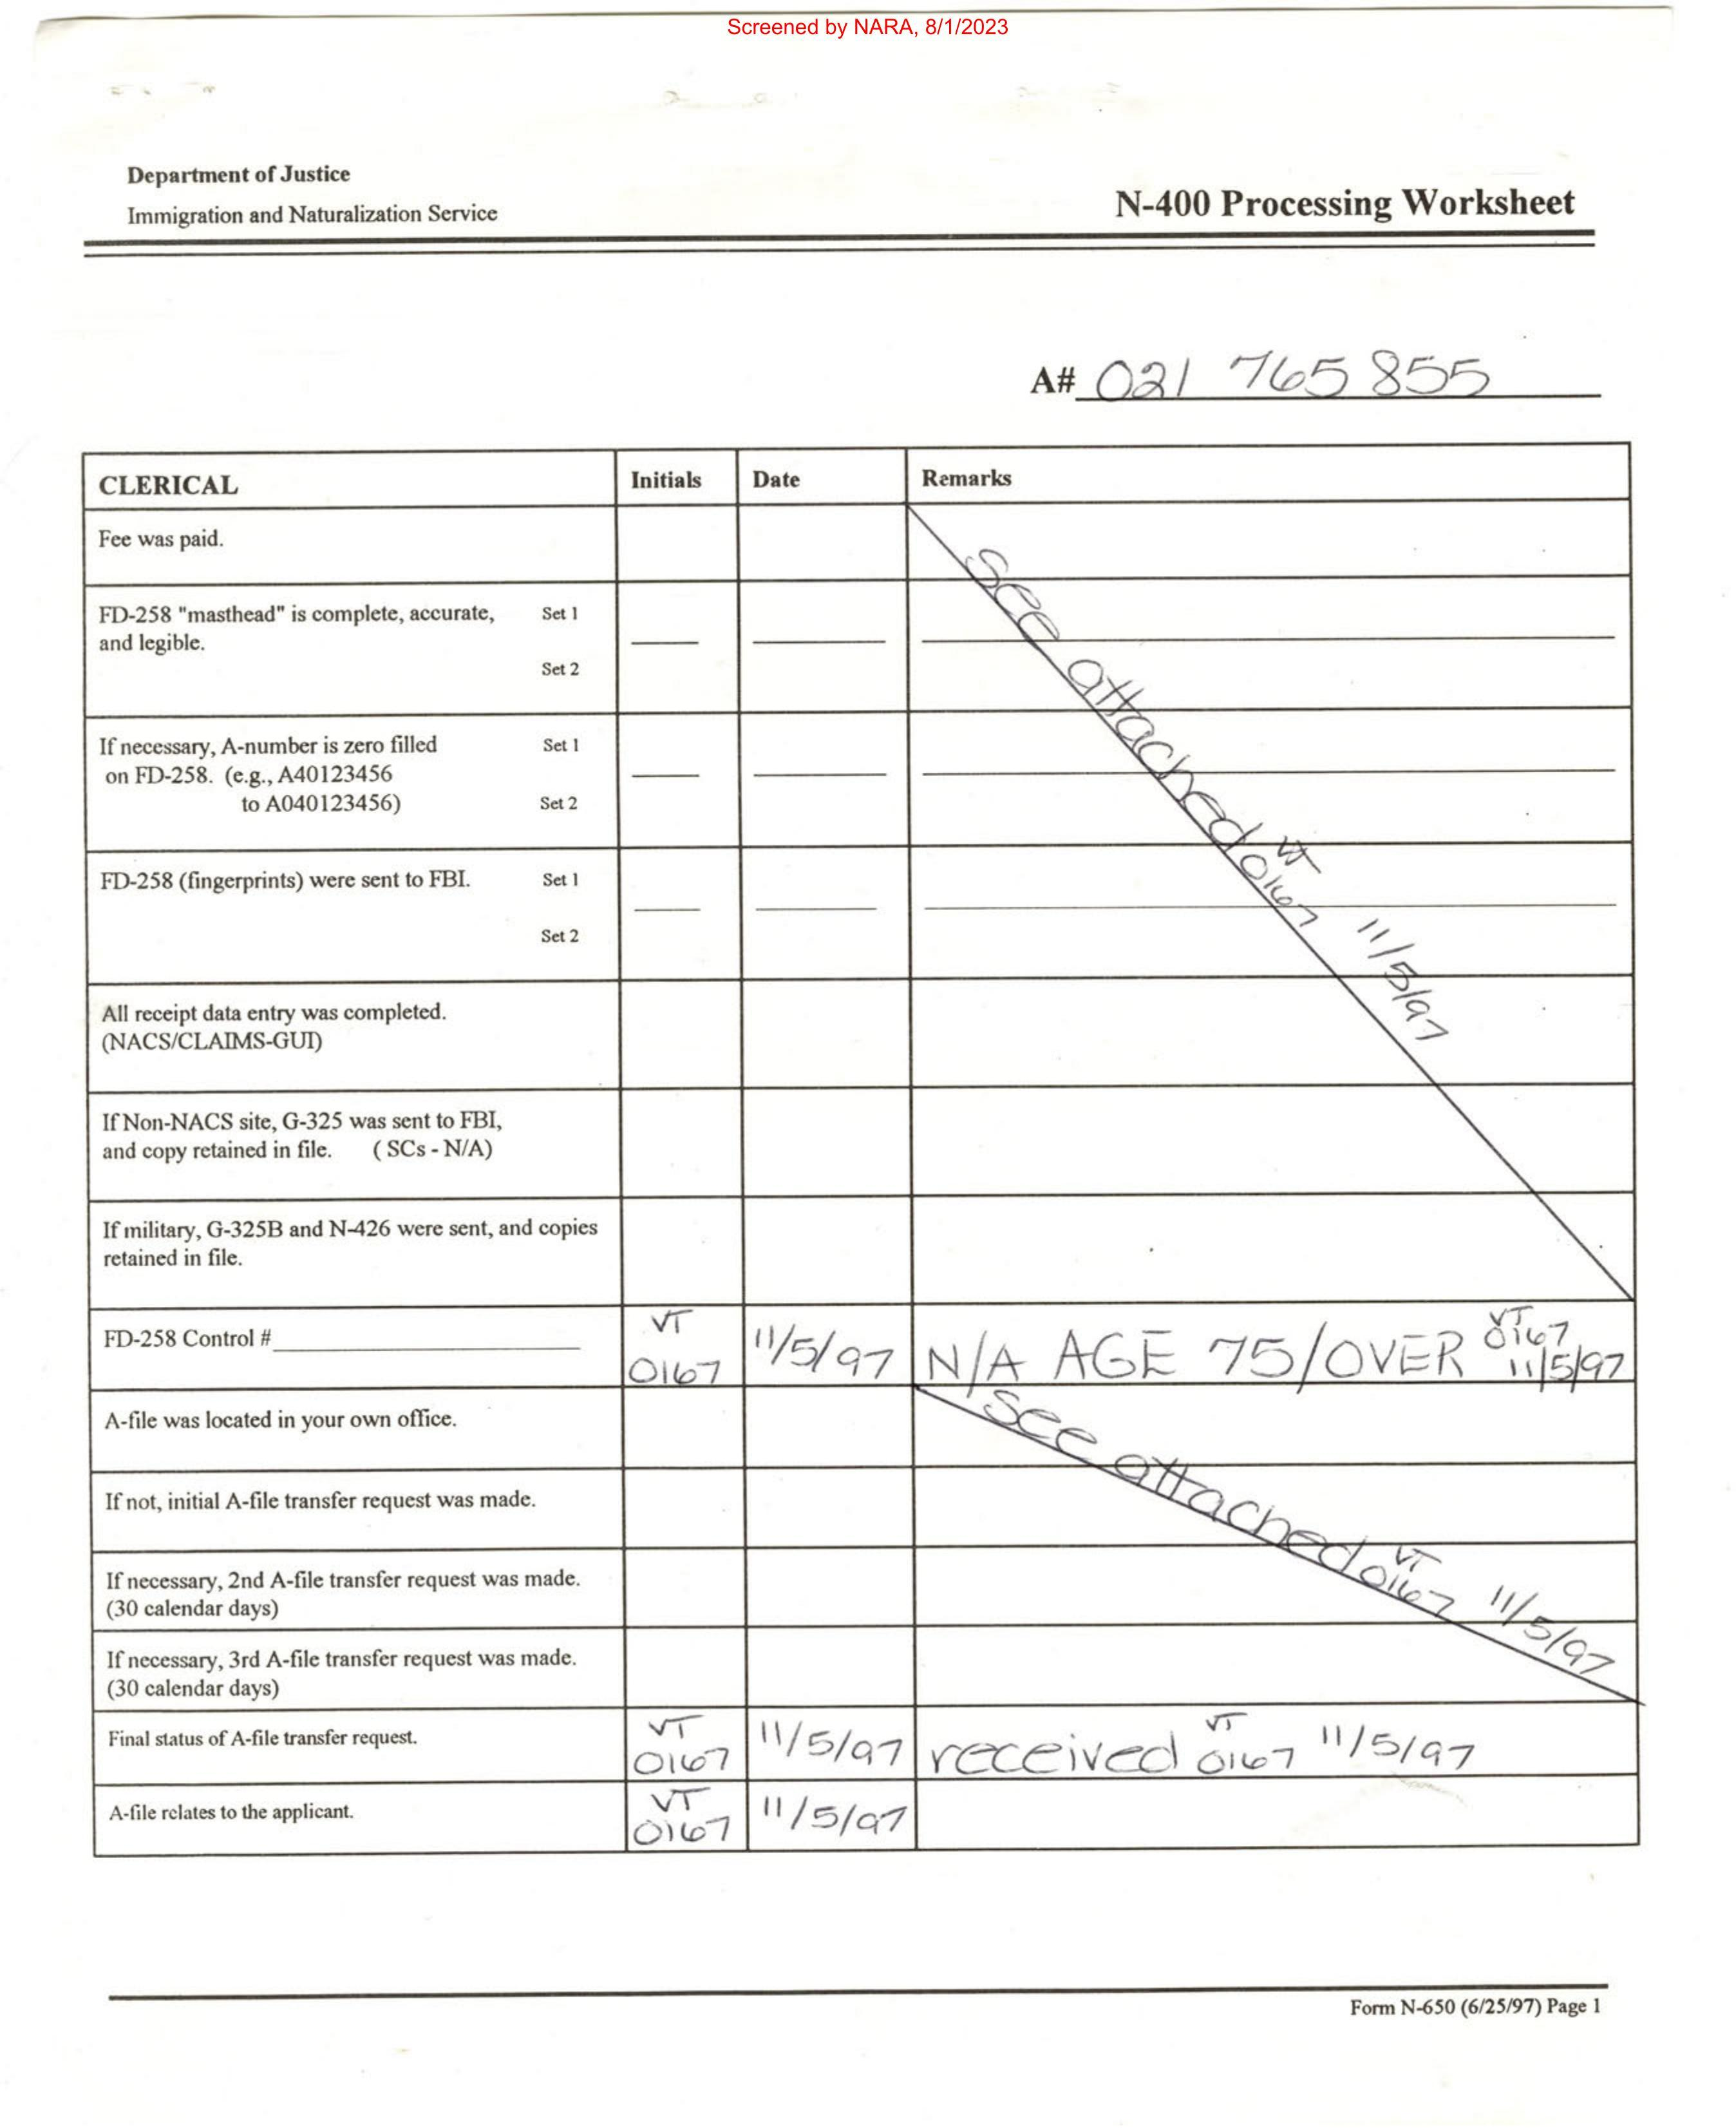 Screened by NARA, 8/1/2023
Department of Justice
Immigration and Naturalization Service
N-400 Processing Worksheet
A# 021 765 855
CLERICAL Initials Date Remarks
Fee was paid.
See attached VT 0167 11/5/97
FD-258 "masthead" is complete, accurate, Set 1
and legible.
Set 2
If necessary, A-number is zero filled Set 1
on FD-258. (e.g., A40123456
to A040123456) Set 2
FD-258 (fingerprints) were sent to FBI. Set 1
Set 2
All receipt data entry was completed.
(NACS/CLAIMS-GUI)
If Non-NACS site, G-325 was sent to FBI,
and copy retained in file. ( SCs - N/A)
If military, G-325B and N-426 were sent, and copies
retained in file.
FD-258 Control # VT 0167 11/5/97 N/A AGE 75/OVER VT 0167 11/5/97
A-file was located in your own office.
See attached VT 0167 11/5/97
If not, initial A-file transfer request was made.
If necessary, 2nd A-file transfer request was made.
(30 calendar days)
If necessary, 3rd A-file transfer request was made.
(30 calendar days)
Final status of A-file transfer request. VT 0167 11/5/97 received VT 0167 11/5/97
A-file relates to the applicant. VT 0167 11/5/97
Form N-650 (6/25/97) Page 1